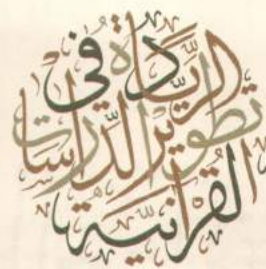 الرِّيَادَة في
تطوير الدِّراسات
القُرآنيّة